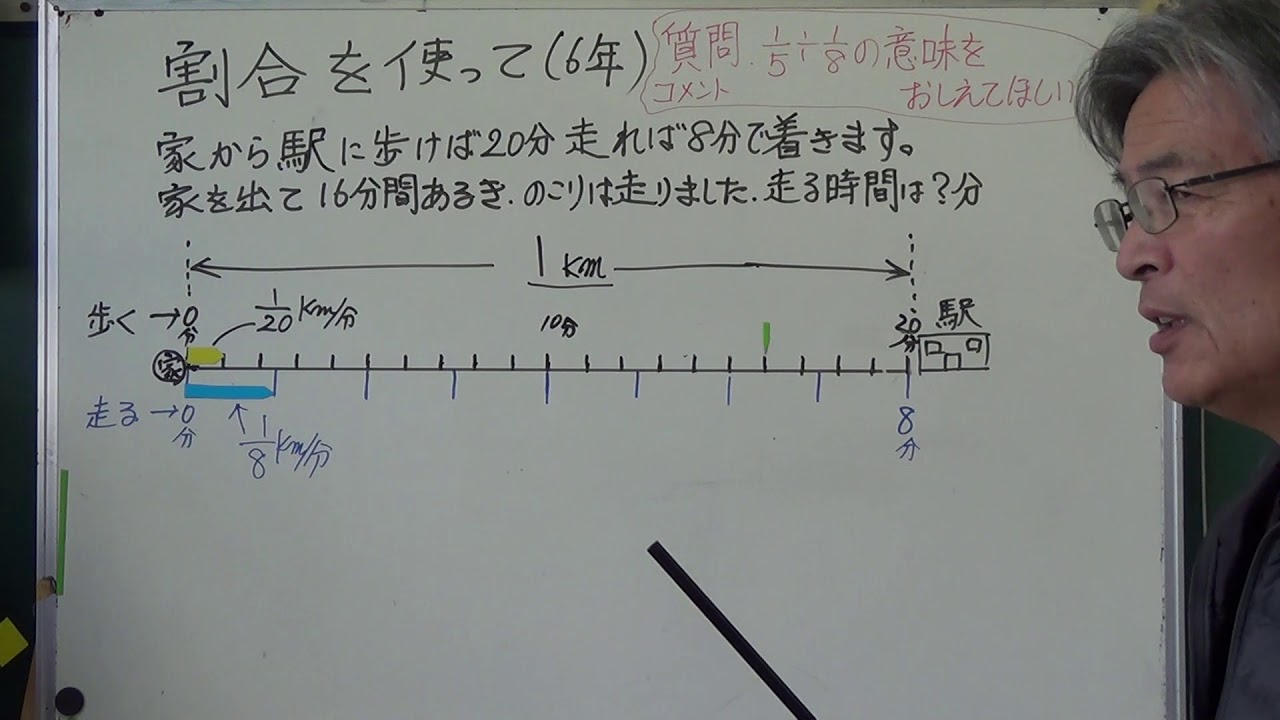 割合を使って(6年)
質問. 1/5÷1/8の意味を
コメント おしえてほしい
家から駅に歩けば20分 走れば8分で着きます。
家を出て16分間あるき.のこりは走りました.走る時間は?分
1km
歩く→0分 1/20km/分 10分 20分 駅
家
走る→0分 1/8km/分 8分